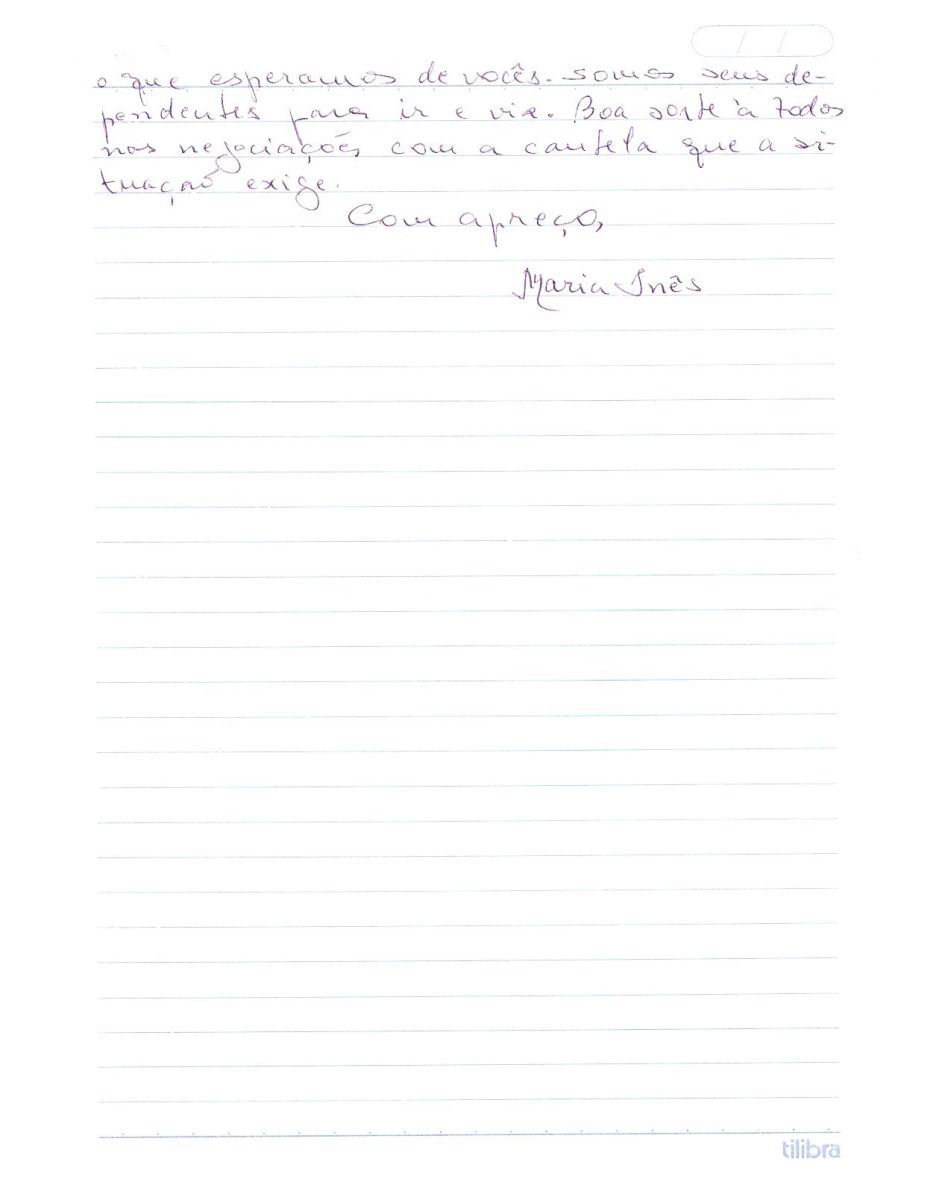 / /
o que esperamos de vocês. somos seus de-
pendentes para ir e vir. Boa sorte à todos
nas negociações, com a cautela que a si-
tuação exige.
Com apreço,
Maria Inês
tilibra